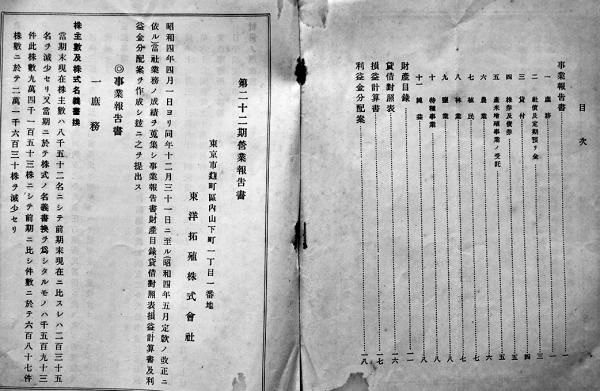 目次
事業報告書 一
一 庶務 一
二 社債及定期預リ金 一
三 貸付 三
四 株券及債券 四
五 產米增殖事業ノ受託 五
六 農業 六
七 植民 七
八 林業 七
九 鹽業 八
十 特種事業 八
十一 純益 八
財產目錄
貸借對照表
損益計算書
利益金分配案 一八
第二十二期營業報告書
東京市麴町區內山下町一丁目一番地
東洋拓殖株式會社
昭和四年四月一日ヨリ同年十二月三十一日ニ至ル(昭和四年五月定款ノ改正ニ
依ル)當社業務ノ成績ヲ蒐集シ事業報告書財產目錄、貸借對照表損益計算書及利
益金分配案ヲ作成シ玆ニ之ヲ提出ス
◎事業報告書
一 庶務
株主數及株式名義書換
當期末現在株主數ハ八千五十二名ニシテ前期末現在ニ比スレハ二百三十五
名ヲ減少セリ又當期ニ於テ株式ノ名義書換ヲ爲シタルモノハ千五百九十三
件此株數九萬四千一百五十三株ニシテ前期ニ比シ件數ニ於テ六百八十七件
株數ニ於テ二萬一千六百三十株ヲ減少セリ